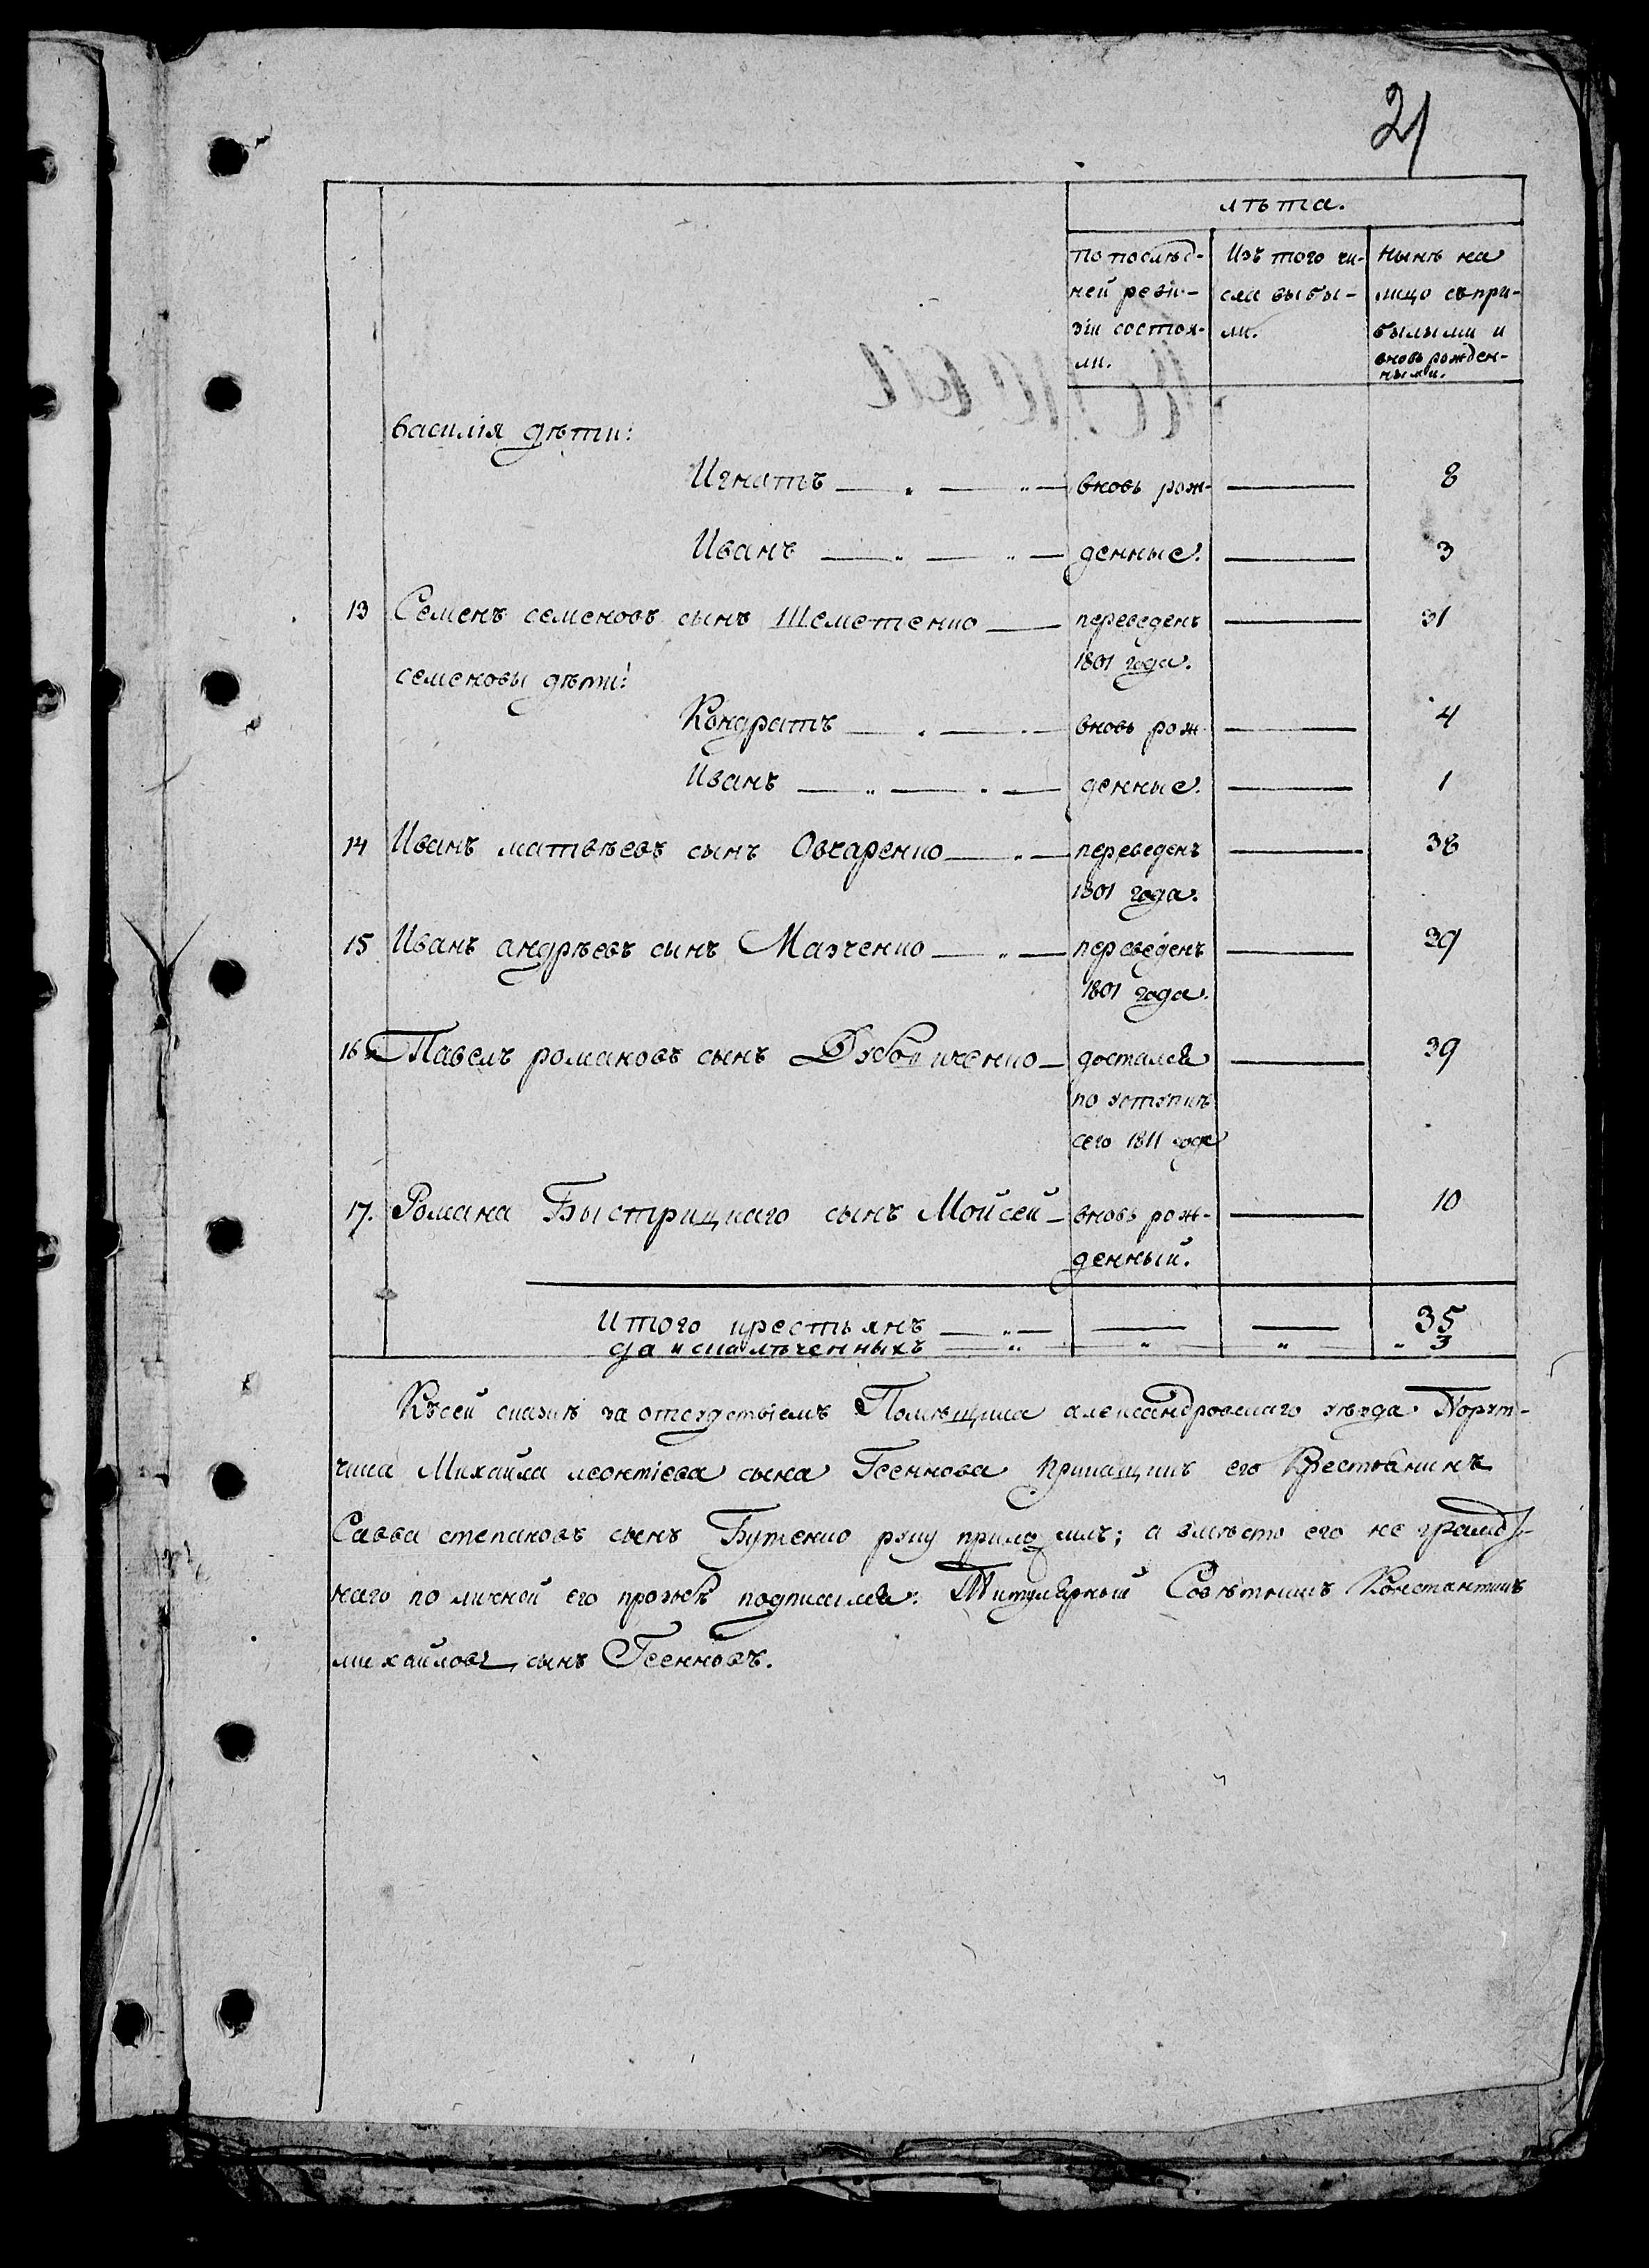 21
лѣта.
по послѣд-
ней реви-
зіи состоя-
ли.
Изъ того чи-
сла выбы-
ли.
Нынѣ на
лицо съ при-
былыми и
вновь рожден-
ными.
Василія дѣти:
Игнатъ — „ — „ — вновь рож- — 8
Иванъ — „ — „ — денные. — 3
13 Семенъ семеновъ сынъ Шеметенко — переведенъ — 31
1801 года.
семеновы дѣти:
Кондратъ — „ — „ — вновь рож — 4
Иванъ — „ — „ — денные. — 1
14 Иванъ матвѣевъ сынъ Овчаренко — „ — переведенъ — 38
1801 года.
15 Иванъ андрѣевъ сынъ Мазченко — „ — переведенъ — 39
1801 года.
16 Павелъ романовъ сынъ — достался — 39
по уступкѣ
сего 1811 года
17. Романа Быстрицкаго сынъ Мойсей — вновь рож- — 10
денный.
Итого крестьянъ — „ — — — 35
да искалѣченныхъ — „ — „ — „ — „ 3
Къ сей сказкѣ за отсудствіемъ Помѣщика александровскаго уѣзда Порут-
чика Михайла леонтіева сына Гееннова прикащикъ его Крестьянинъ
Савва степановъ сынъ Бутенко руку приложилъ; а вмѣсто его не грамот-
наго по личной его прозьбѣ подписался: Титулярный Совѣтникъ Константинъ
михайловъ сынъ Гееновъ.